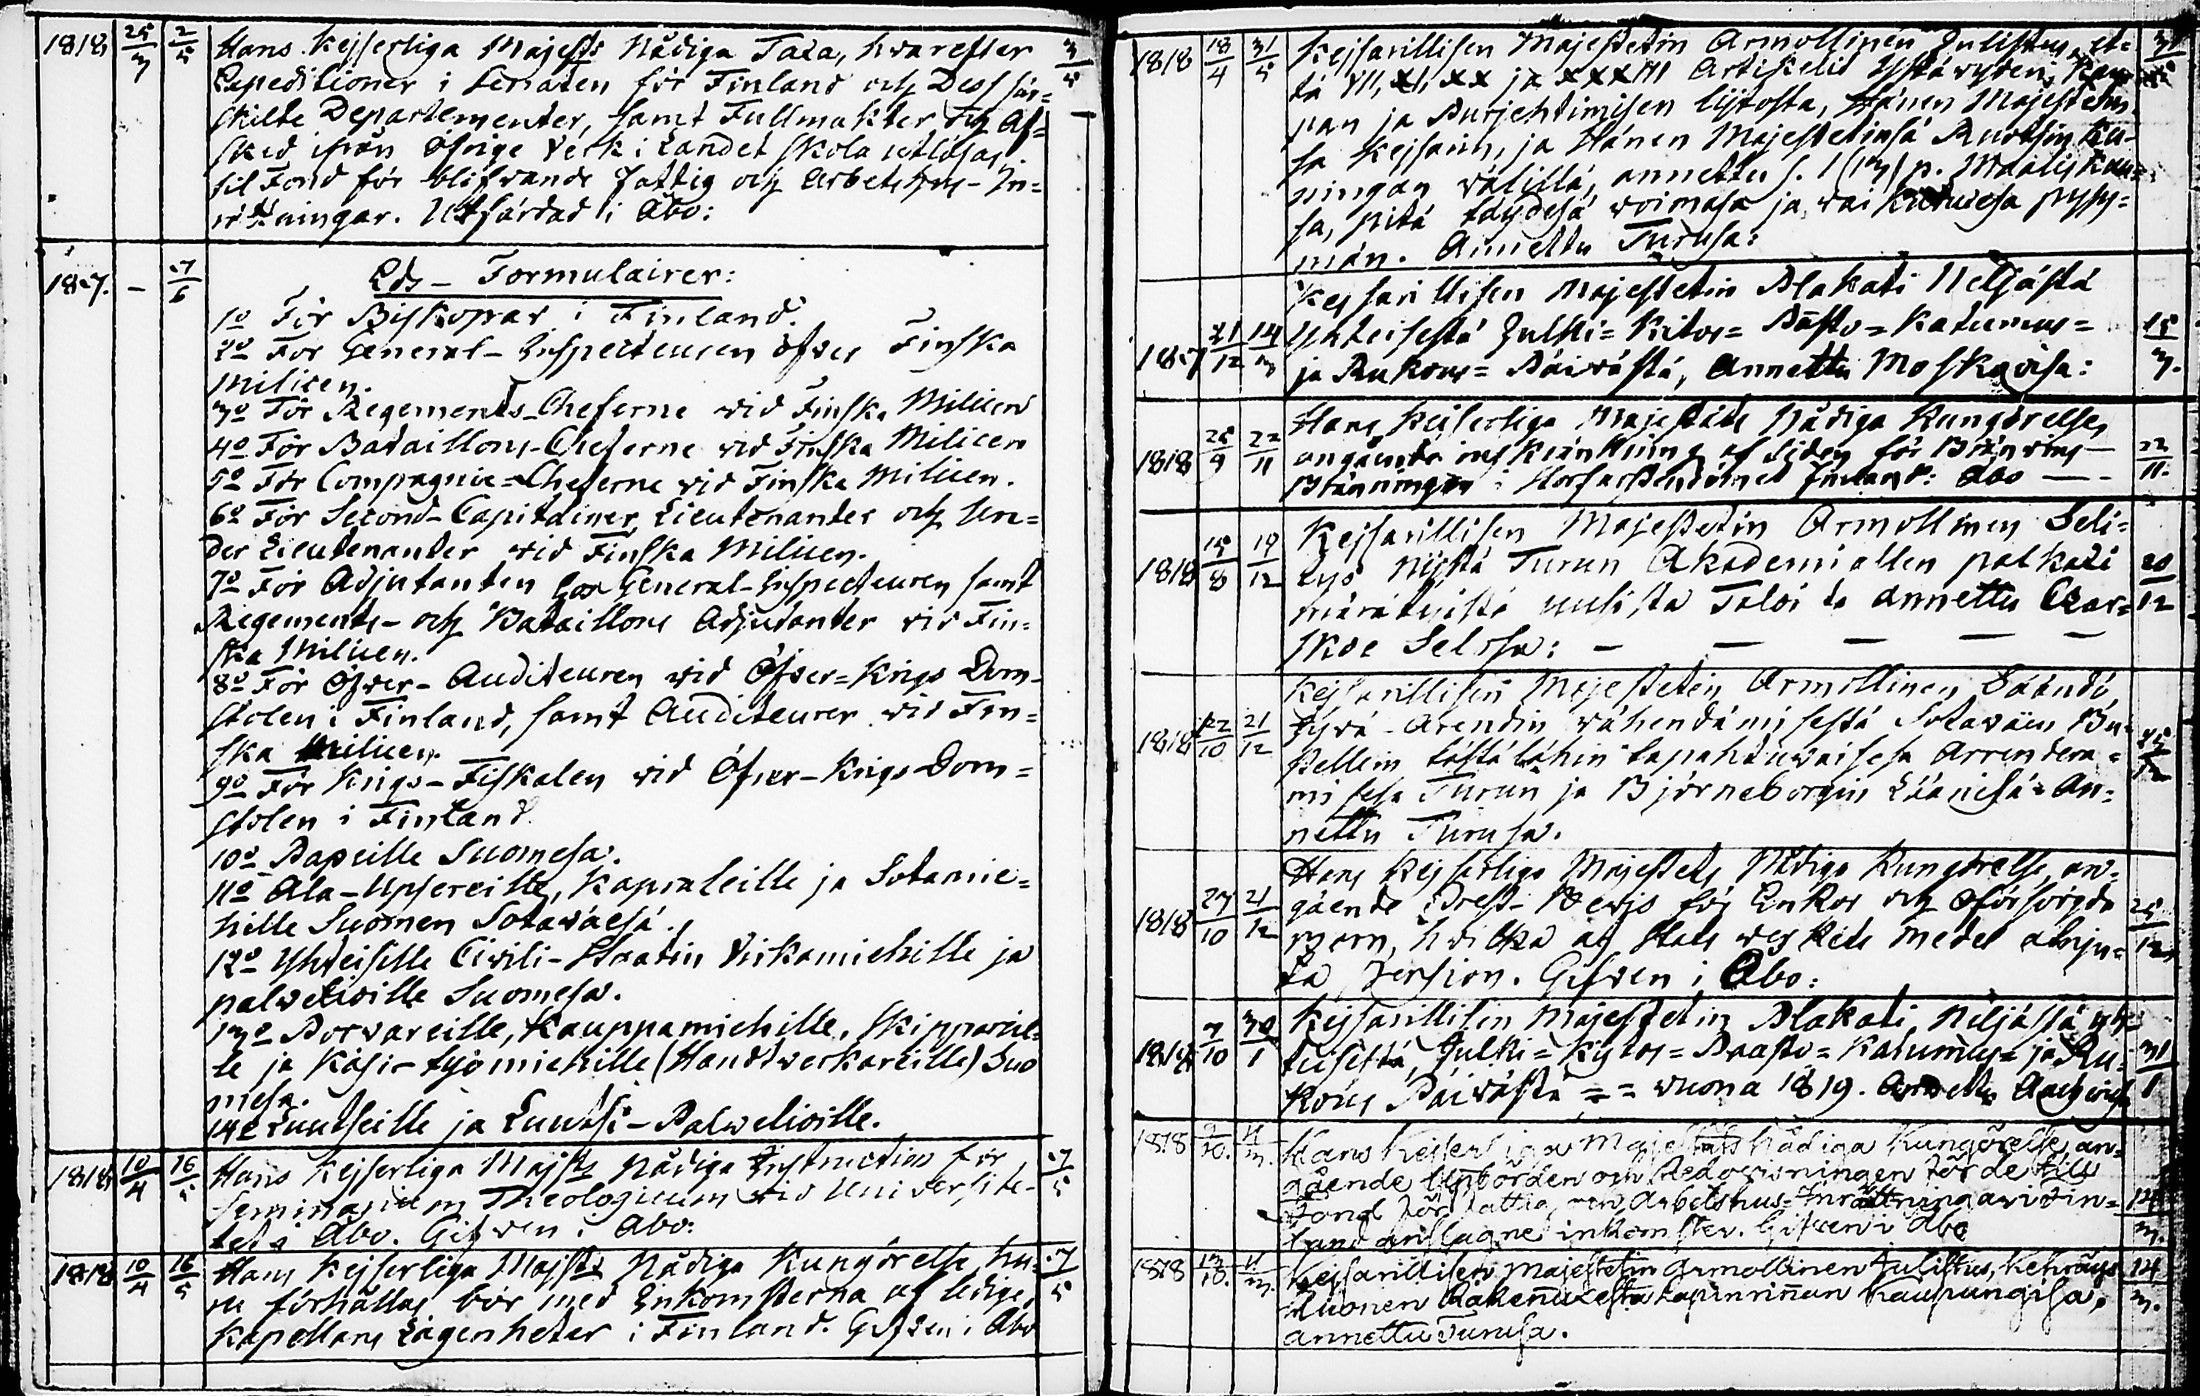 1818 25/3 2/5 Hans Kejserliga Majest:s Nådiga Taxa, hwarefter 3/5
Expeditioner i Senaten för Finland och Dess sär=
skilte Departementer, samt Fullmakter och Af=
sked ifrån öfrige Verk i Landet skola utlösas
til Fond för blifwande Fattig och Arbetshus-In=
rättningar. Utfärdad i Åbo:
18-7. - 7/6 Eds-Formulairer:
1o För Biskopar i Finland.
2o För General-Inspecteuren öfwer Finska
Milicen.
3o För Regements-Cheferne wid Finska Milicen
4o För Bataillons-Cheferne wid Finska Milicen
5o För Compagnie=Cheferne wid Finska Milicen.
6o För Second-Capitainer, Lieutenanter och Un=
der Lieutenanter wid Finska Milicen.
7o För Adjutanten hos General-Inspecteuren samt
Regements- och Bataillons Adjutanter wid Fin=
ska Milicen.
8o För Öfwer-Auditeuren wid Öfwer=Krigs Dom-
stolen i Finland, samt Auditeurer wid Fin=
ska Milicen.
9o För Krigs-Fiskalen wid Öfwer-Krigs-Dom=
stolen i Finland.
10o Papeille Suomesa.
11o Ala-Upsereille, Kapraleille ja Sotamie=
hille Suomen Sotawäesä.
12o Yhteisille Civili-Staatin Virkamiehille ja
palwelioille Suomesa.
13o Porwareille, Kauppamiehille, Skippareil=
le ja Käsi-työmiehille (Handtwerkareille) Suo
mesa.
14o Luutseille ja Luutsi-Palwelioille.
1818 10/4 16/5 Hans Kejserliga Majsts Nådiga Instruction för 7/5
Seminarium Theologicum wid Universite-
tet i Åbo. Gifwen i Åbo:
1818 10/4 16/5 Hans Kejserliga Majsts Nådiga Kungörelse, hu- 7/5
ru förhållas bör med Inkomsterna af ledige
Kapellans Lägenheter i Finland. Gifwen i Åbo
1818 18/4 31/5 Kejsarillisen Majestetin Armollinen Julistus, et- 31/5
tä VII, XI, XX ja XXXIII Artikelit Ystäwyden, Kaup
pan ja Purjehtimisen lijtosta, Hänen Majestetin
sa Kejsarin, ja Hänen Majestetinsä Ruotsin Ku-
ningan wälillä, annettu s. 1 (13) p. Maaliskuu=
sa, pitä täydesä woimasa ja waikutuxesa pysy=
män. Annettu Turusa:
18-7 21/12 14/3 Kejsarillisen Majestetin Plakati Neljästä
Yhteisestä Julki=Kitos=Pasto=Katumus= 15/3.
ja Rukous=Päiwästä, Annettu Moskovisa:
1818 25/9 22/11 Hans Kejserliga Majestäts Nådiga Kungörelse,
angående inskränkning af tiden för Bränwins- 22/11.
Bränningen i Storfurstendömet Finland: Åbo
1818 15/8 19/12 Kejsarillisen Majestetin Armollinen Seli=
tys Nijstä Turun Akademiallen palkaxi 20/12
määrätyistä uusista Taloista annettu Czar=
skoe Selosa:
1818 22/10 21/12 Kejsarillisen Majestetin Armollinen Säändö
Hywä-Arendin wähendämisestä Sotawäen Bu-
stellein tästälähin tapahtuwaisesa Arrendera=
misesa Turun ja Björneborgin Läänisä: An=
nettu Turusa.
1818 27/10 21/12 Hans Kejserliga Majestets Nådiga Kungörelse, an-
gående Prest-Bewis för Enkor och oförsörgda 25/12
barn, hwilka af Stats werkets medel åtnju=
ta Pension. Gifwen i Åbo:
1818 7/10 30/1 Kejsarillisen Majestetin Plakati, Neljästä yh-
teisestä, Julki=Kijtos=Paasto=Katumus= ja Ru= 31/1
kous Päiwästä = = wuona 1819. Annettu
1818 9/10. 11/3. Hans Kejserliga Majestäts Nådiga Kungörelse, an-
gående Upbörden och Redowisningen för de till
Fond för Fattig och Arbetshus-Inrättningar i Fin= 14/3.
land anslagne inkomster. Gifwen i Åbo
1818 13/10. 11/3. Kejsarillisen Majestetin Armollinen Julistus, Kehräys 14/3.
Huonen Rakennuxesta Lapinrinnan Kaupungisa,
annettu Turusa.